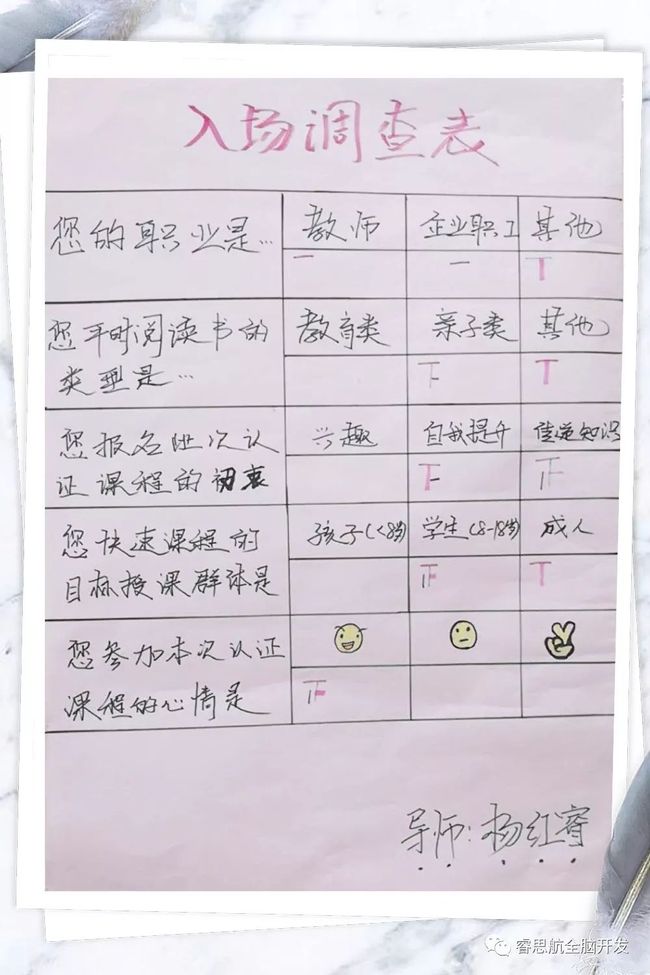 入场调查表
您的职业是… 教师 企业职工 其他
一 一 T
您平时阅读书的 教育类 亲子类 其他
类型是… 下 T
您报名此次认 兴趣 自我提升 传递知识
证课程的初衷 下 正
您快速课程的 孩子(<8岁) 学生(8-18岁) 成人
目标授课群体是 正 T
您参加本次认证
课程的心情是 正
导师:杨红
睿思航全脑开发